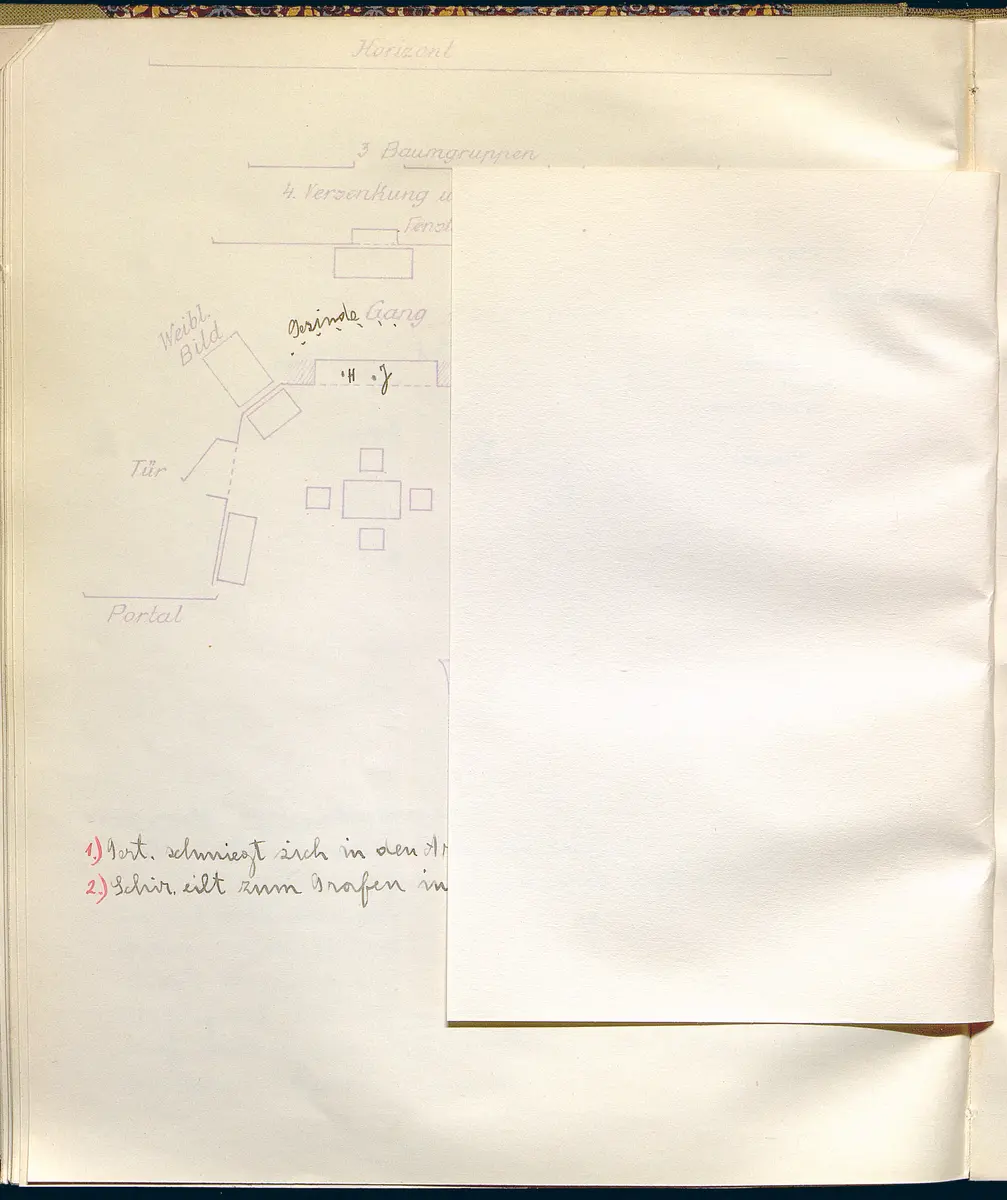 Horizont
3 Baumgruppen
4. Versenkung u
Fenst
Gesinde Gang
Weibl.
Bild
H J
Tür
Portal
1.) Gert. schmiegt sich in den Ar
2.) Schir. eilt zum Grafen in